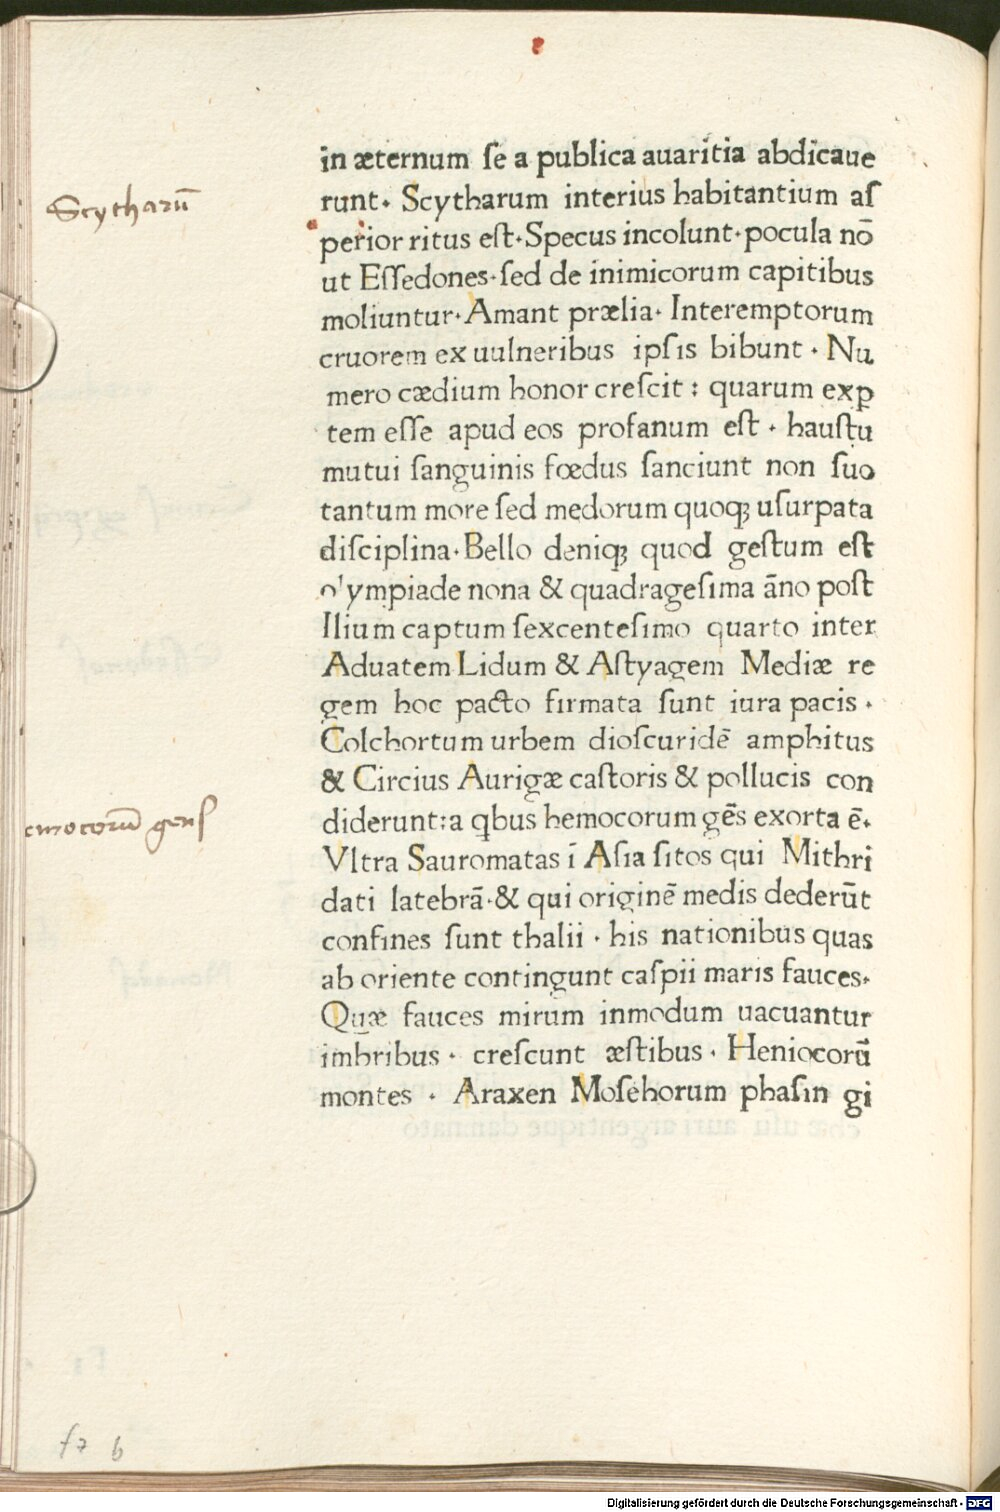 Scytharū
in æternum ſe a publica auaritia abdicaue
runt· Scytharum interius habitantium aſ
perior ritus eſt·Specus incolunt·pocula nō
ut Eſſedones·ſed de inimicorum capitibus
moliuntur·Amant prælia· Interemptorum
cruorem ex uulneribus ipſis bibunt · Nu
mero cædium honor creſcit : quarum exꝑ
tem eſſe apud eos profanum eſt · hauſtu
mutui ſanguinis fœdus ſanciunt non ſuo
tantum more ſed medorum quoqꝫ uſurpata
diſciplina·Bello deniqꝫ quod geſtum eſt
olympiade nona & quadrageſima āno poſt
Ilium captum ſexcenteſimo quarto inter
Aduatem Lidum & Aſtyagem Mediæ re
gem hoc pacto firmata ſunt iura pacis ·
Colchortum urbem dioſcuridē amphitus
& Circius Aurigæ caſtoris & pollucis con
diderunt:a qbus hemocorum gēs exorta ē·
emocorū genſ
Vltra Sauromatas ī Aſia ſitos qui Mithri
dati latebrā·& qui originē medis dederūt
confines ſunt thalii · his nationibus quas
ab oriente contingunt caſpii maris fauces·
Quæ fauces mirum inmodum uacuantur
imbribus · creſcunt æſtibus · Heniocorū
montes · Araxen Moſehorum phaſin gi
f7 b
Digitalisierung gefördert durch die Deutsche Forschungsgemeinschaft - DFG